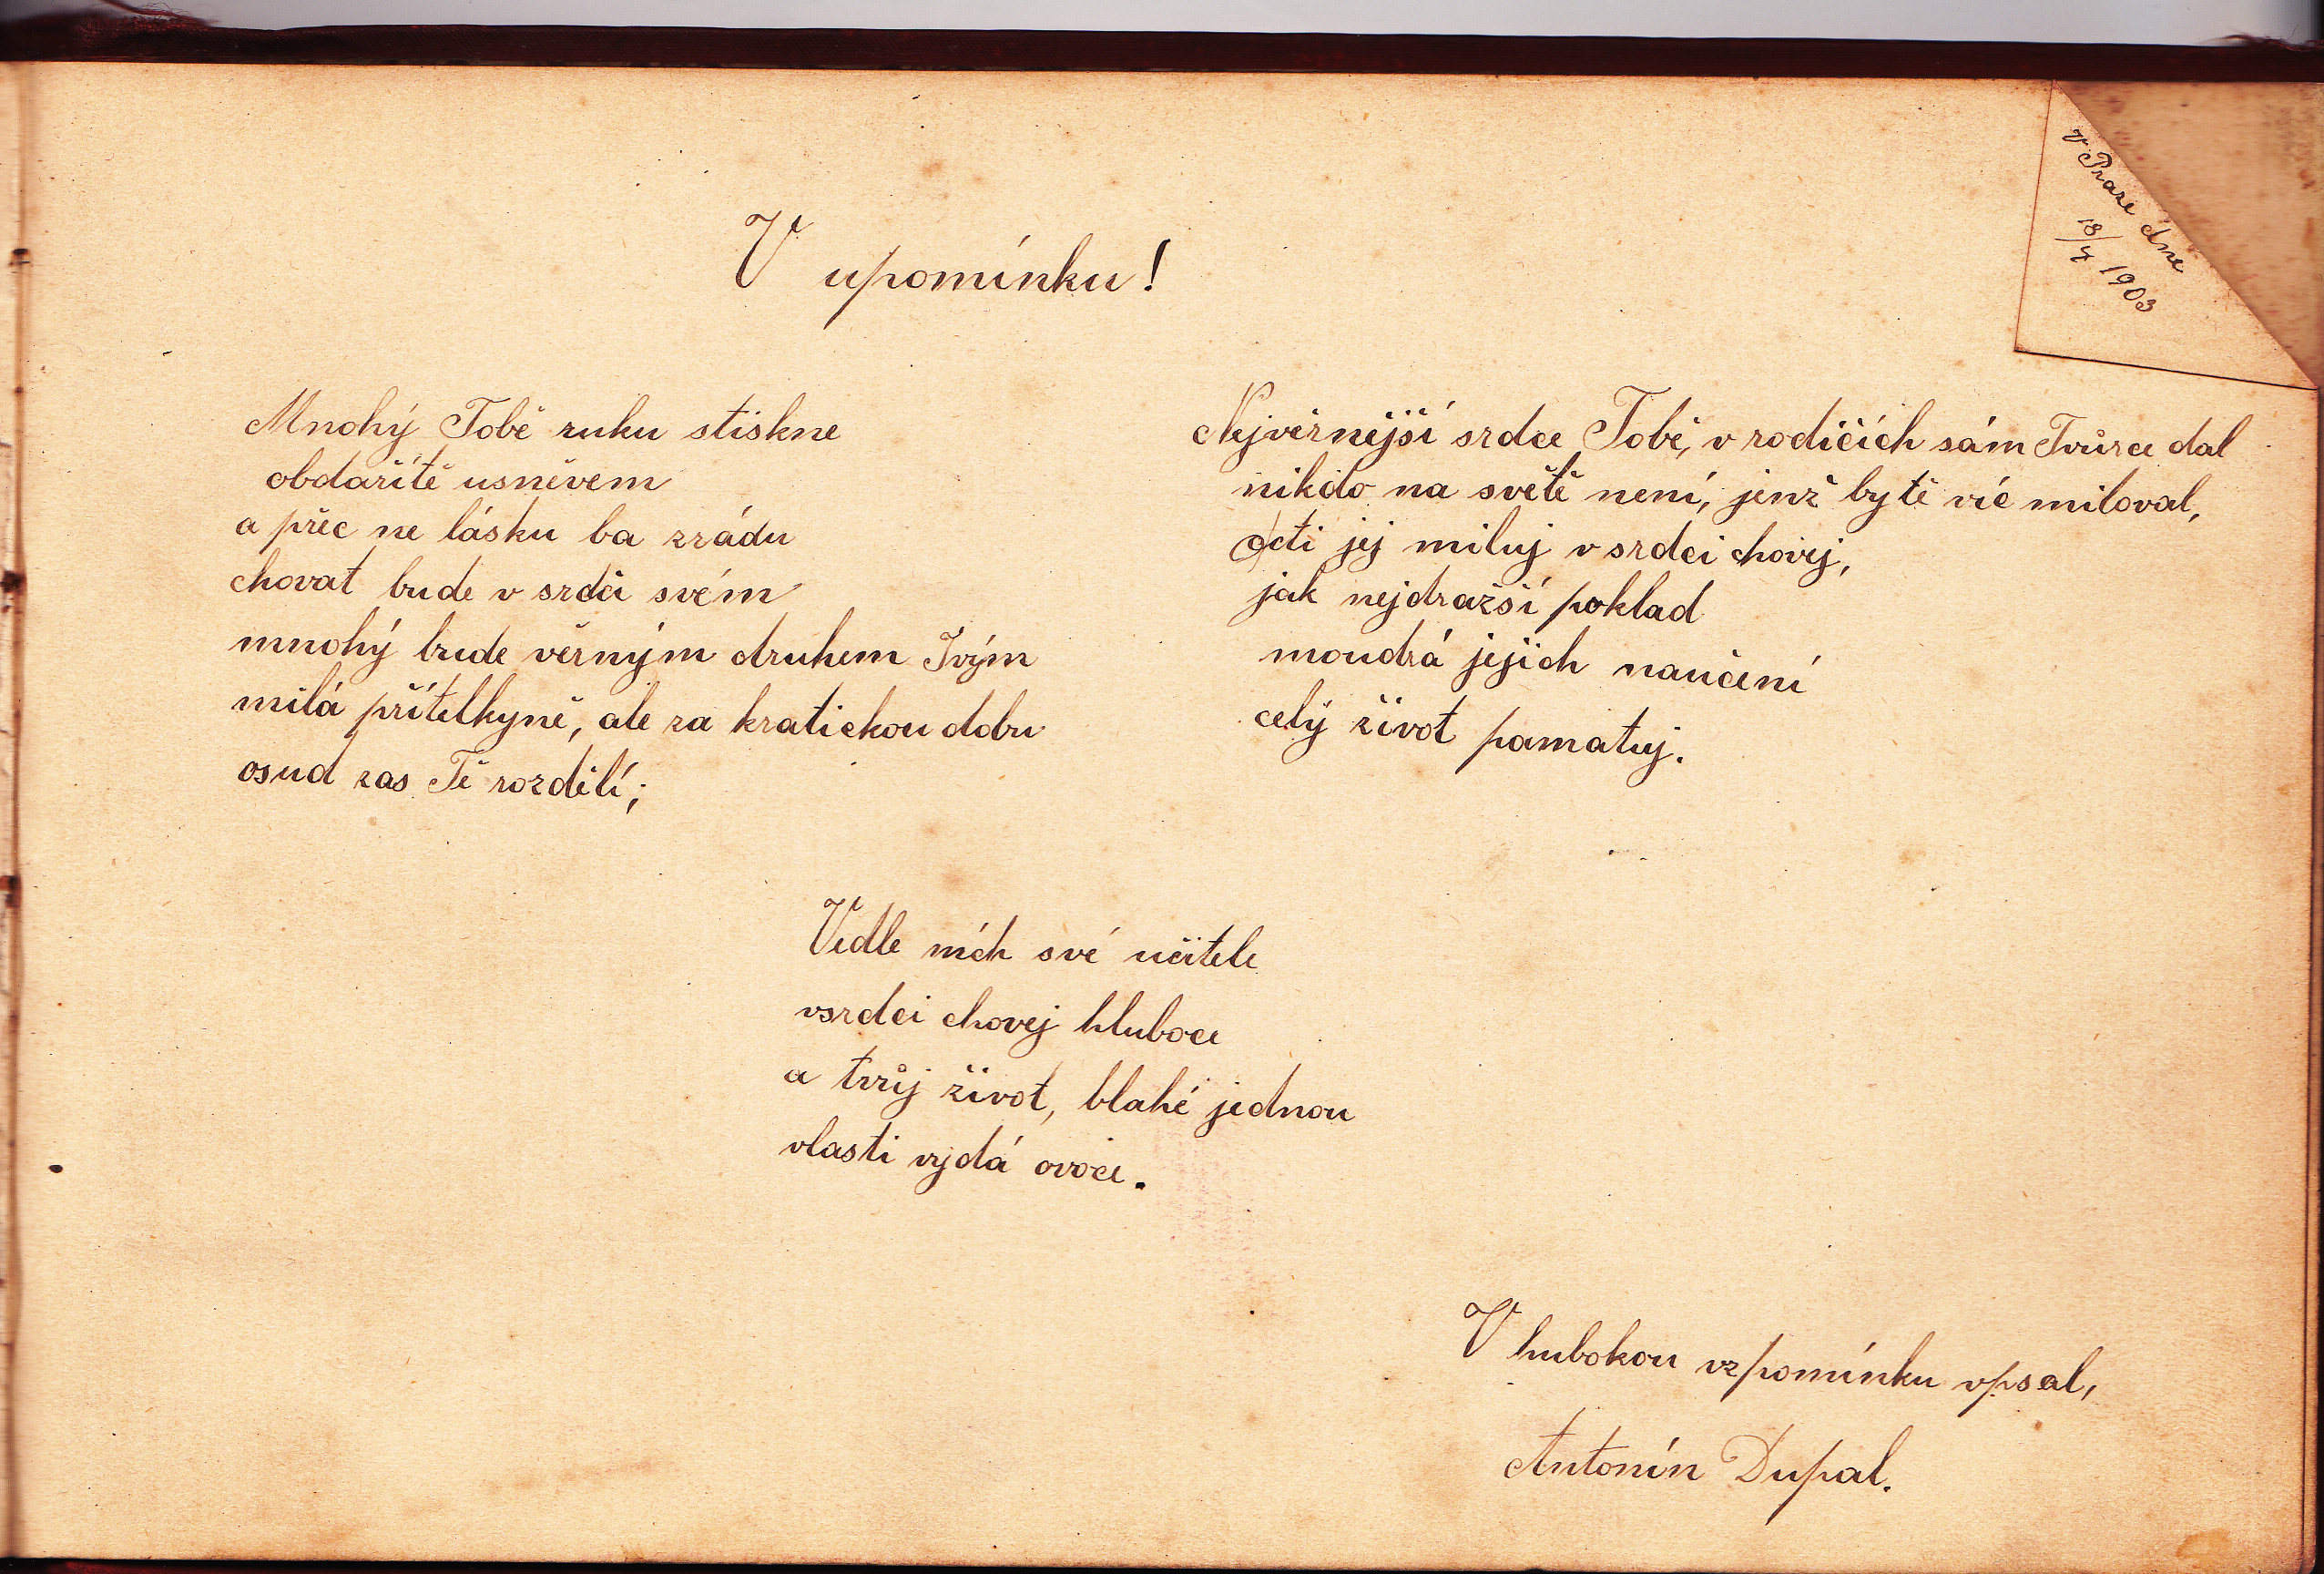 V upomínku!
v Praze dne
18/4 1903
Mnohý Tobě ruku stiskne
obdařítě usněvem
a přec ne lásku ba zrádu
chovat bude v srdci svém
mnohý bude věrným druhem Tvým
milá přítelkyně, ale za kratickou dobu
osud zas Tě rozdělí;
Nejvěrnější srdce Tobě, v rodičích sám Tvůrce dal
nikdo na světě není, jenž bytě víc miloval,
cti jej miluj v srdci chovej,
jak nejdražší poklad
moudrá jejich naučení
celý život pamatuj.
Vedle ních své učitele
vsrdci chovej hluboce
a tvůj život, blahé jednou
vlasti vydá ovoce.
V hubokou vzpomínku vpsal,
Antonín Dupal.